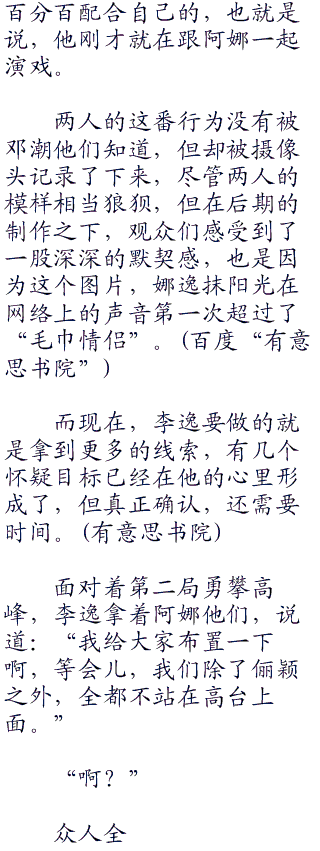 百分百配合自己的，也就是
说，他刚才就在跟阿娜一起
演戏。
两人的这番行为没有被
邓潮他们知道，但却被摄像
头记录了下来，尽管两人的
模样相当狼狈，但在后期的
制作之下，观众们感受到了
一股深深的默契感，也是因
为这个图片，娜逸抹阳光在
网络上的声音第一次超过了
“毛巾情侣”。(百度“有意
思书院”)
而现在，李逸要做的就
是拿到更多的线索，有几个
怀疑目标已经在他的心里形
成了，但真正确认，还需要
时间。(有意思书院)
面对着第二局勇攀高
峰，李逸拿着阿娜他们，说
道：“我给大家布置一下
啊，等会儿，我们除了俪颖
之外，全都不站在高台上
面。”
“啊？”
众人全